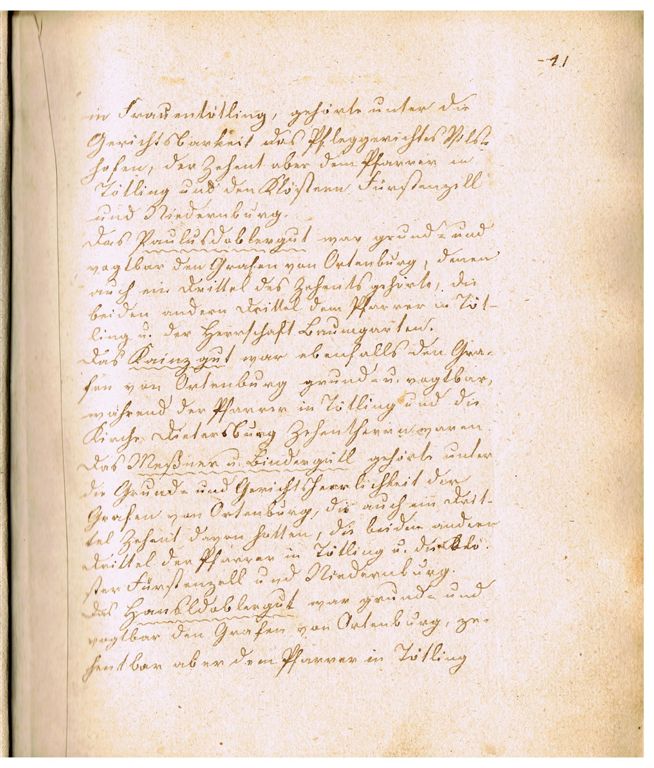 - 41
in Frauentötling, gehörte unter die
Gerichtsbarkeit des Pfleggerichtes Vils-
hofen, der Zehent aber dem Pfarrer in
Tötling und den Klöstern Fürstenzell
und Niedernburg.
Das Paulusdoblergut war grund- und
vogtbar den Grafen von Ortenburg, denen
auch ein Drittel des Zehents gehörte, die
beiden andern Drittel dem Pfarrer in Töt-
ling u. der Herrschaft Baumgarten.
Das Kainzgut war ebenfalls den Gra-
fen von Ortenburg grund- u. vogtbar,
während der Pfarrer in Tötling und die
Kirche Dietersburg Zehentherrn waren.
Das Meßner u. Bindergütl gehörte unter
die Grund- und Gerichtsherrlichkeit der
Grafen von Ortenburg, die auch ein Drit-
tel Zehent davon hatten, die beiden andern
Drittel der Pfarrer in Tötling u. die Klö-
ster Fürstenzell und Niedernburg.
Das Hansldoblergut war grund- und
vogtbar den Grafen von Ortenburg, ze-
hentbar aber dem Pfarrer in Tötling